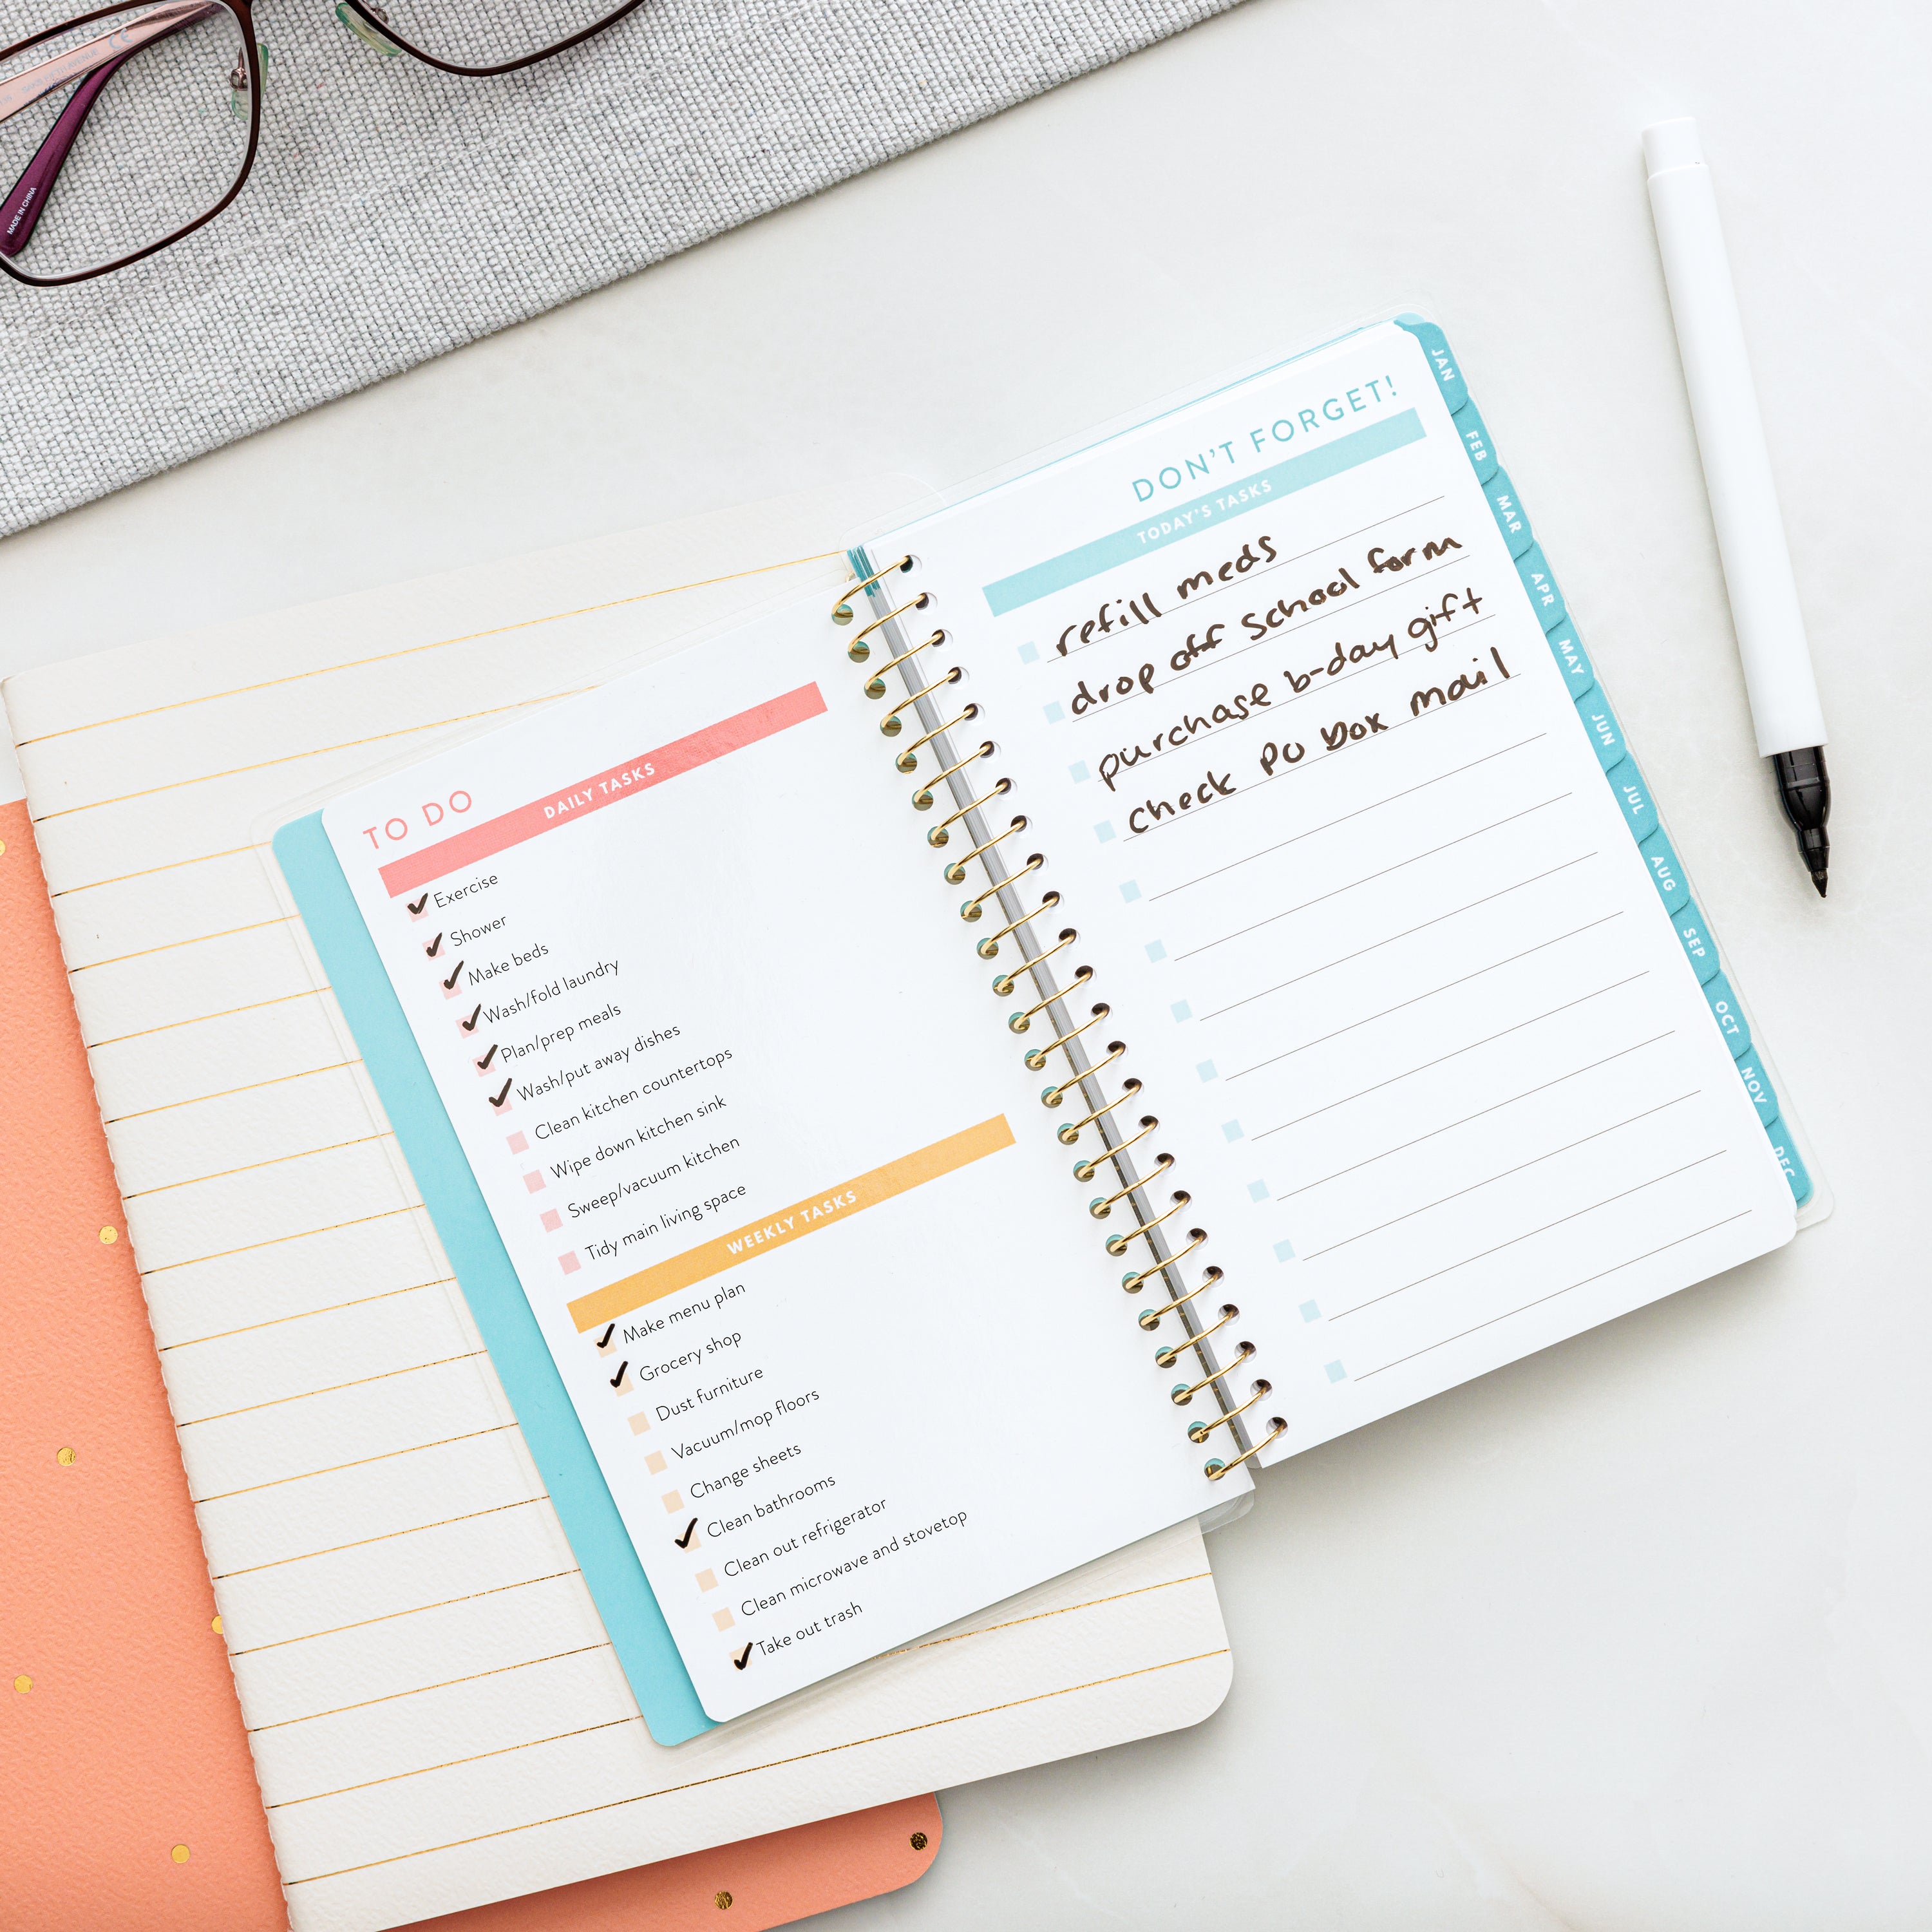 MADE IN CHINA
CE
TO DO
DAILY TASKS
Exercise
Shower
Make beds
Wash/fold laundry
Plan/prep meals
Wash/put away dishes
Clean kitchen countertops
Wipe down kitchen sink
Sweep/vacuum kitchen
Tidy main living space
WEEKLY TASKS
Make menu plan
Grocery shop
Dust furniture
Vacuum/mop floors
Change sheets
Clean bathrooms
Clean out refrigerator
Clean microwave and stovetop
Take out trash
DON'T FORGET!
TODAY'S TASKS
refill meds
drop off school form
purchase b-day gift
check PO box mail
JAN
FEB
MAR
APR
MAY
JUN
JUL
AUG
SEP
OCT
NOV
DEC